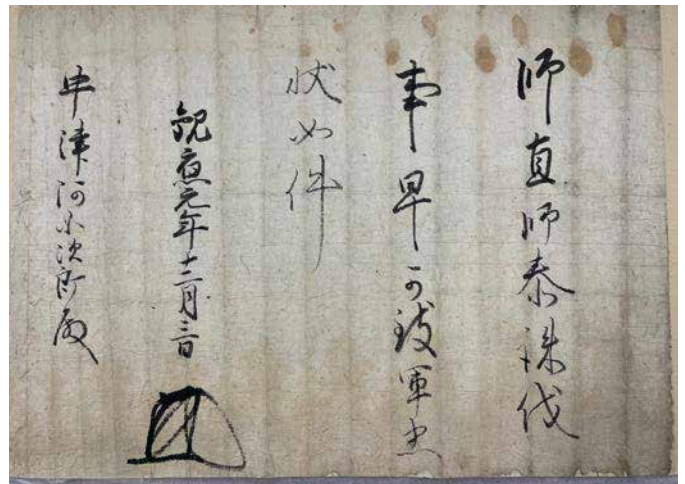 師直師泰誅伐
事早可致軍忠
状如件
観応元年十二月三日
中津河小次郎殿